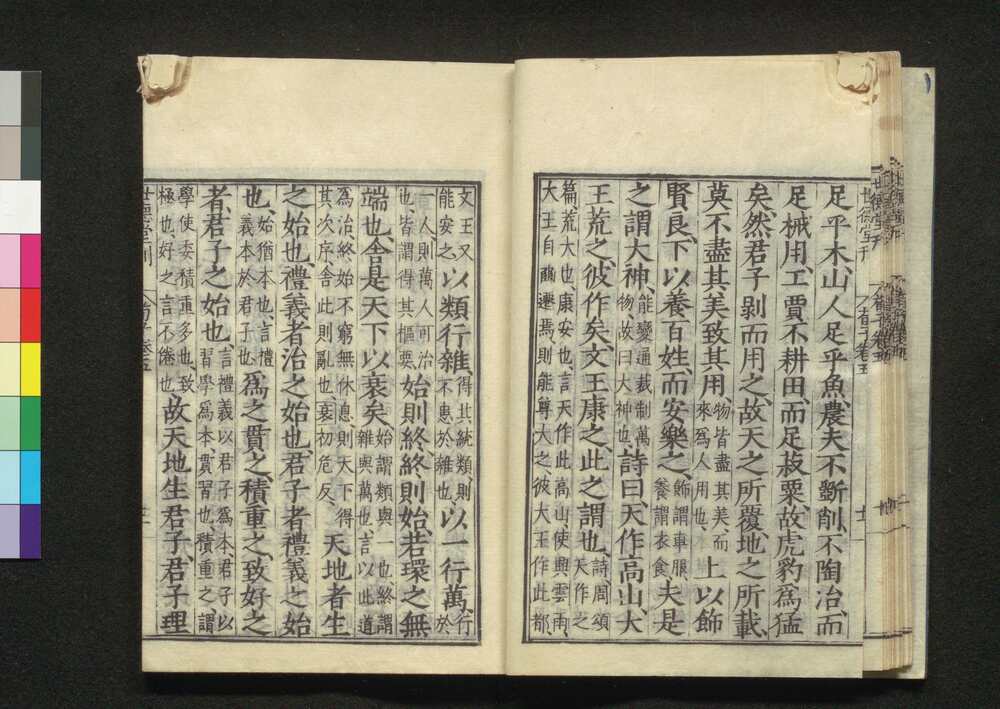 足乎木、山人足乎魚、農夫不斲削、不陶冶、而
足械用、工賈不耕田、而足菽粟、故虎豹為猛
矣、然君子剥而用之、故天之所覆、地之所載、
莫不盡其美、致其用、物皆盡其美、而來為人用也、上以飾
賢良、下以養百姓、而安樂之、飾謂車服、養謂衣食、夫是
之謂大神、能變通裁制萬物、故曰大神也、詩曰、天作高山、大
王荒之、彼作矣、文王康之、此之謂也、詩、周頌天作之
篇、荒大也、康安也、言天作此高山、使興雲雨、
大王自豳遷焉、則能尊大之、彼大王作此都、
世德堂刊
荀子卷五
十一
文王又能安之、以類行雜、得其統類、則不患於雜也、以一行萬、行於
一人、則萬人可治也、皆謂得其樞要、始則終、終則始、若環之無
端也、舍是天下以衰矣、始謂類與一也、終謂雜與萬也、言以此道
為治、終始不窮、無休息、則天下得其次序、舍此則亂也、衰初危反、天地者生
之始也、禮義者治之始也、君子者禮義之始
也、始猶本也、言禮義本於君子也、為之貫之、積重之、致好之
者、君子之始也、言禮義以君子為本、君子以習學為本、貫習也、積重之謂
學使委積重多也、致極也、好之言不倦也、故天地生君子、君子理
世德堂刊